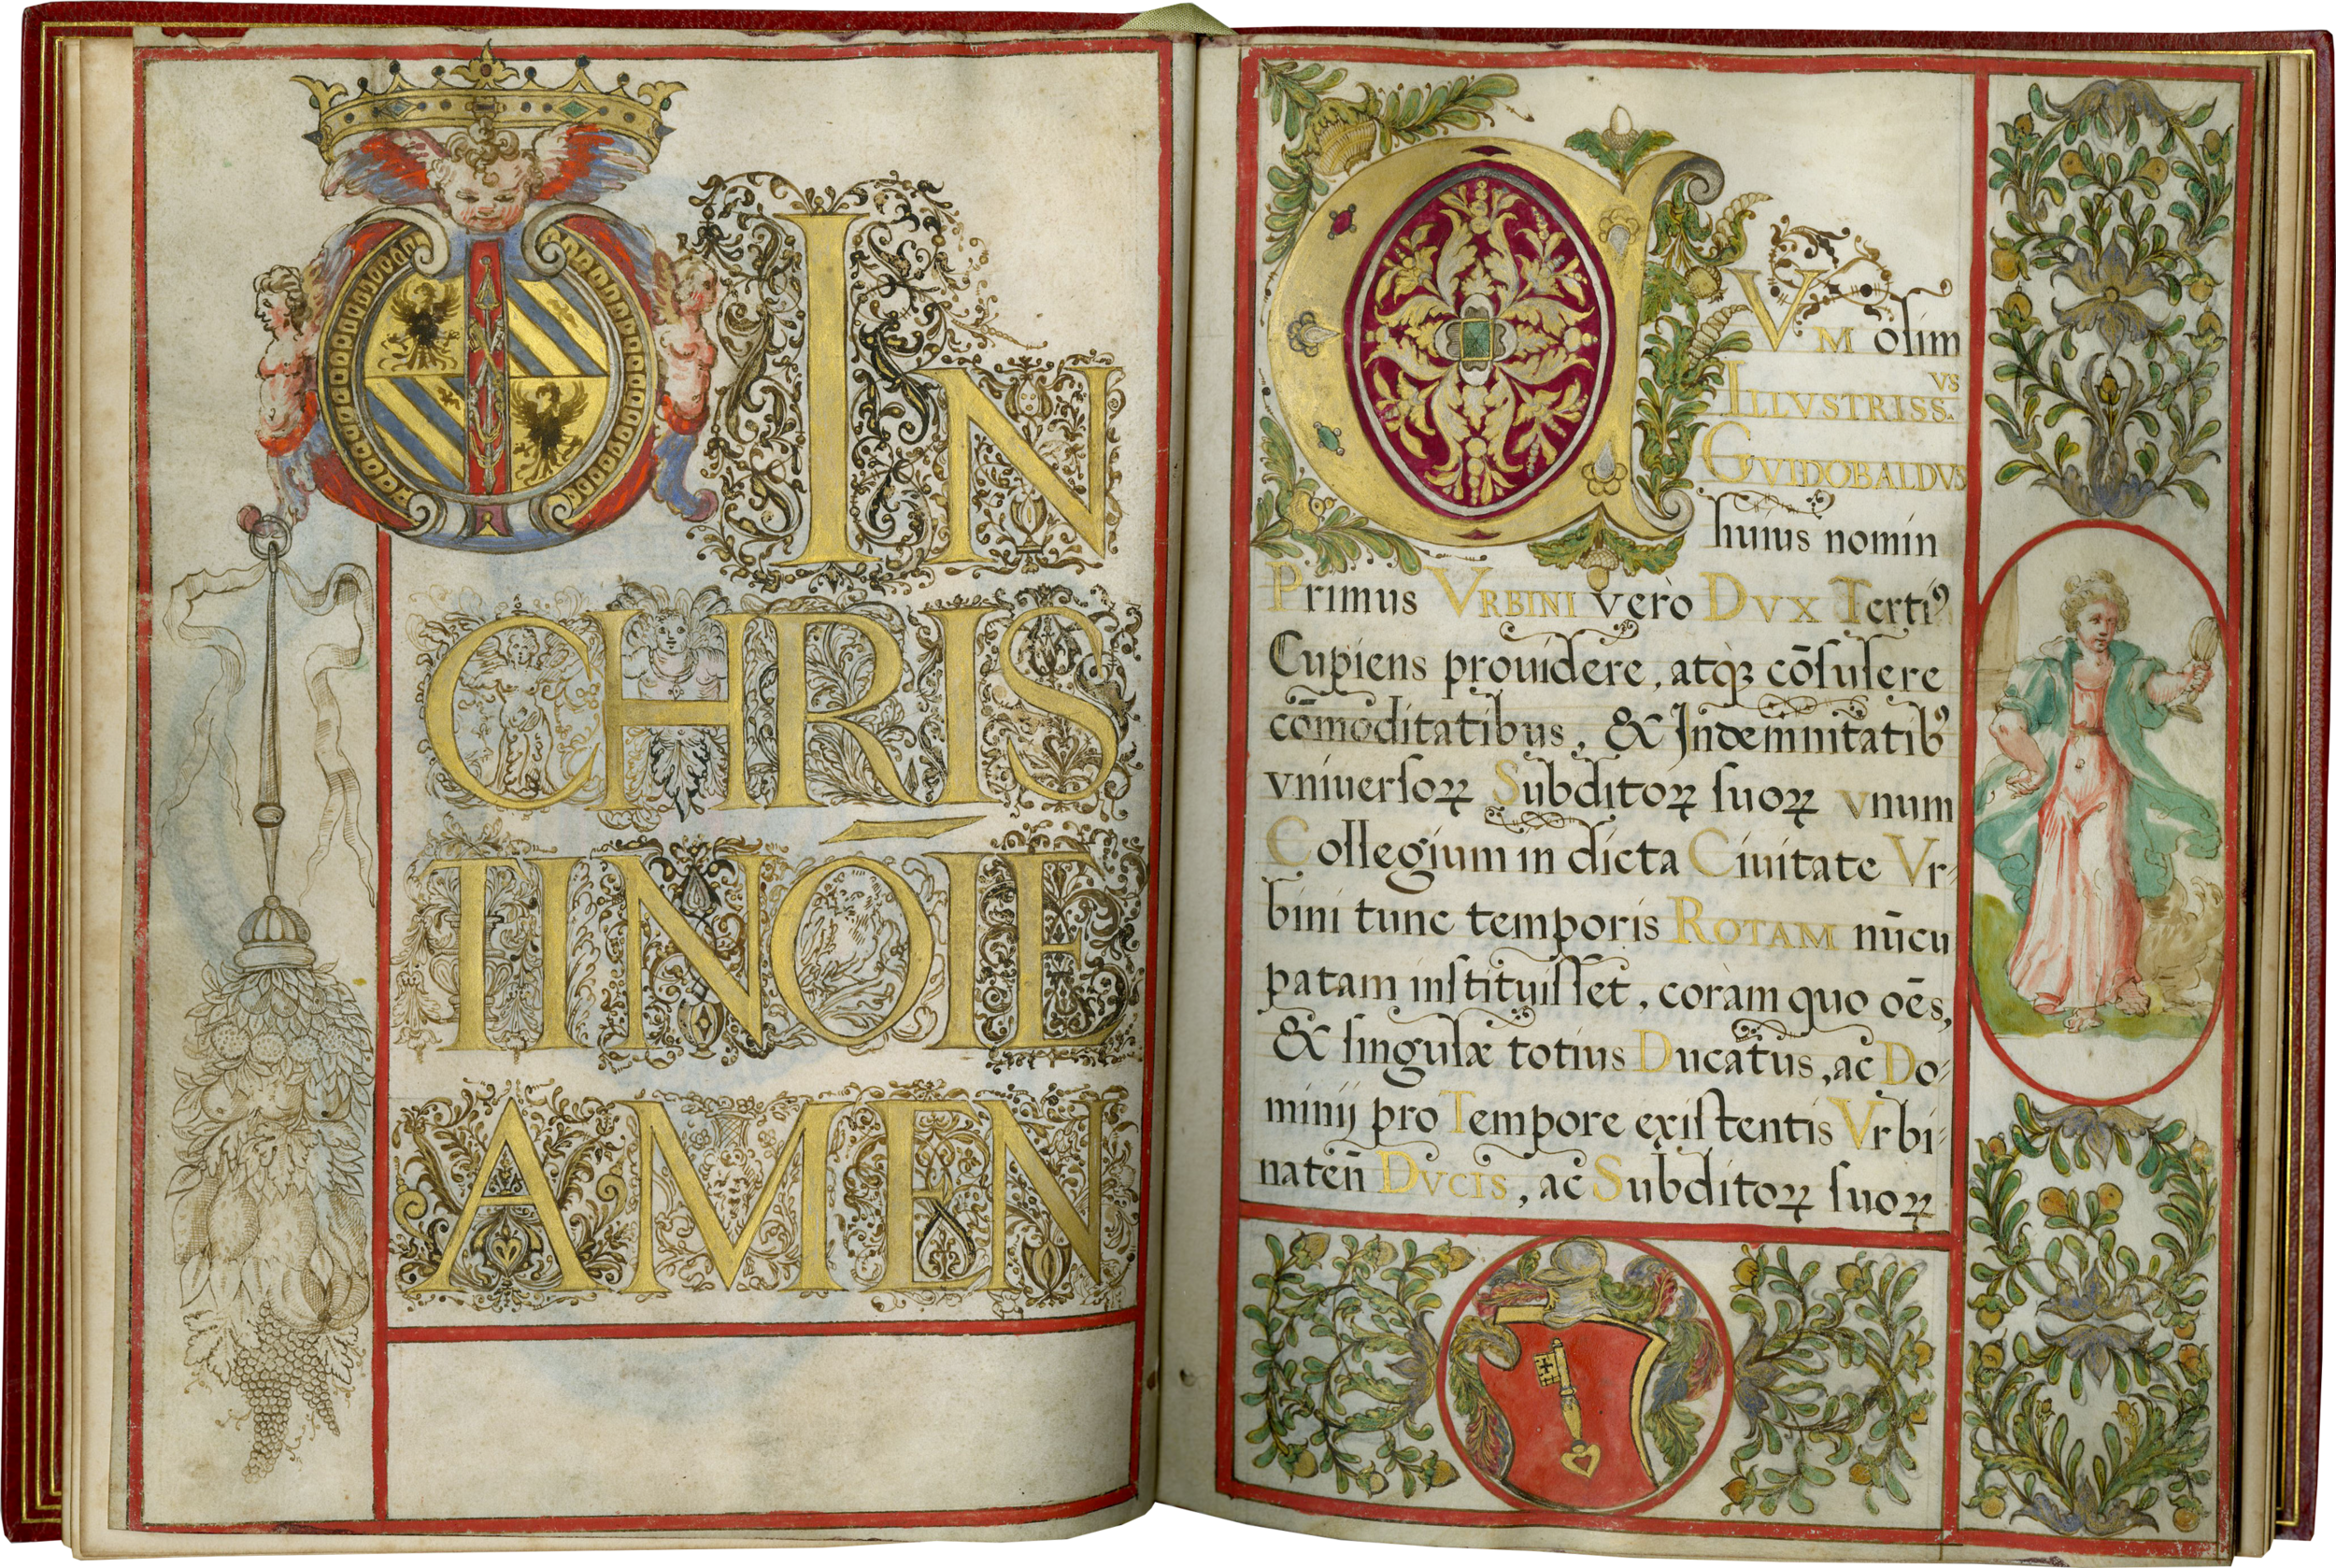 IN
CHRIS
TI NŌIE
AMEN
CVM olim
ILLVSTRISS.VS
GVIDOBALDVS
huius nomin
Primus VRBINI verò DVX Terti⁹
Cupiens prouidere, atq́ꝫ cōſulere
cōmoditatibus, & Indemnitatib⁹
vniuerſoꝝ Subditoꝝ ſuoꝝ vnum
Collegium in dicta Ciuitate Vr-
bini tunc temporis ROTAM nūcu
patam inſtituiſſet, coràm quo oēs,
& ſingulæ totius Ducatus, ac Do-
minij pro Tempore exiſtentis Vrbi-
nateñ DVCIS, ac Subditoꝝ ſuoꝝ